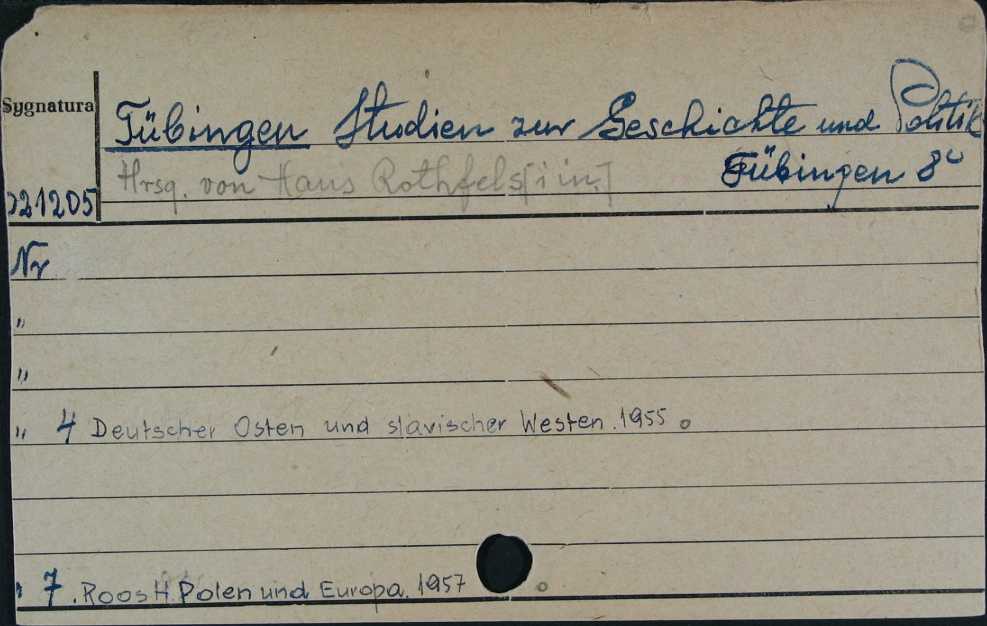 Sygnatura
Tübingen Studien zur Geschichte und Politik
Hrsg. von Hans Rothfels [i in.]
Tübingen 8°
221205
Nr
"
"
" 4 Deutscher Osten und slavischer Westen. 1955
" 7. Roos H. Polen und Europa. 1957